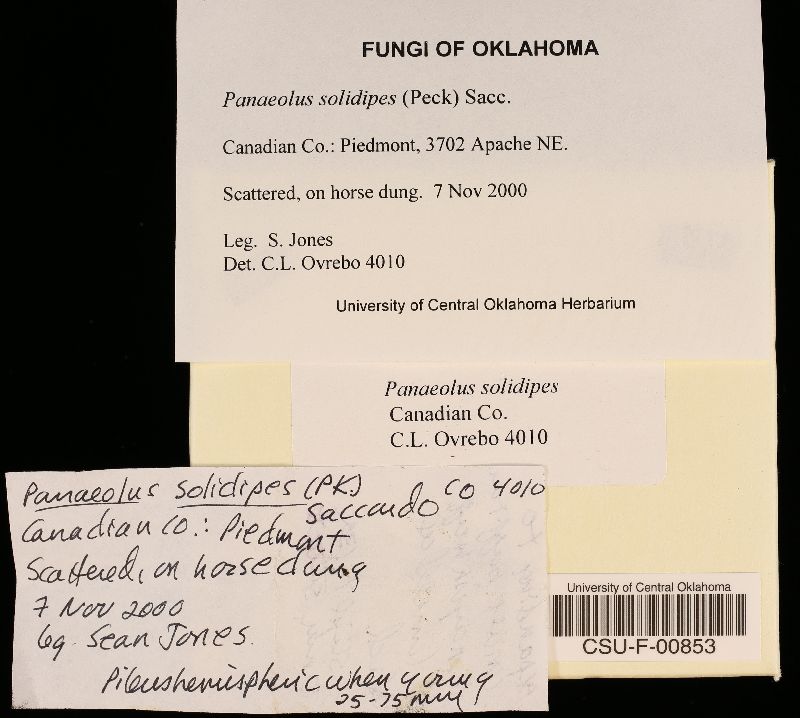 FUNGI OF OKLAHOMA
Panaeolus solidipes (Peck) Sacc.
Canadian Co.: Piedmont, 3702 Apache NE.
Scattered, on horse dung. 7 Nov 2000
Leg. S. Jones
Det. C.L. Ovrebo 4010
University of Central Oklahoma Herbarium
Panaeolus solidipes
Canadian Co.
C.L. Ovrebo 4010
Panaeolus solidipes (PK) CO 4010
Saccardo
Canadian Co.: Piedmont
Scattered, on horse dung
7 Nov 2000
leg. Sean Jones.
Pileus hemispheric when young
25-75 mm
University of Central Oklahoma
CSU-F-00853